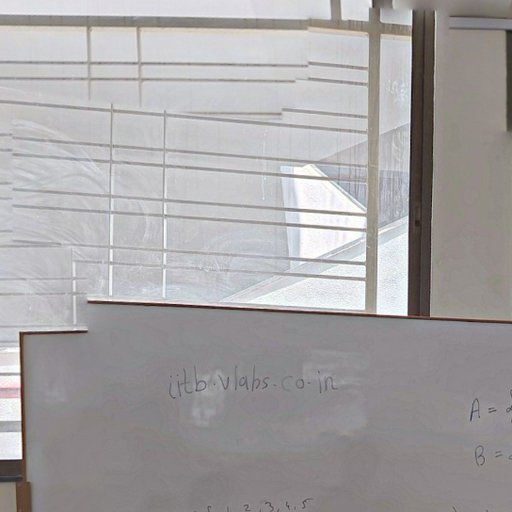 iitb.vlabs.co.in
A =
B =
1, 2, 3, 4, 5